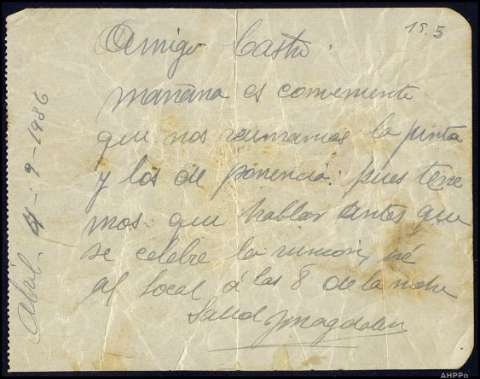 18.5
Amigo Castro.
mañana es conveniente
que nos reunamos la junta
y los de ponencia: pues tene
mos que hablar antes que
se celebre la reunion, iré
al local á las 8 de la noche
Salud
Abril 9-1936
AHPPo